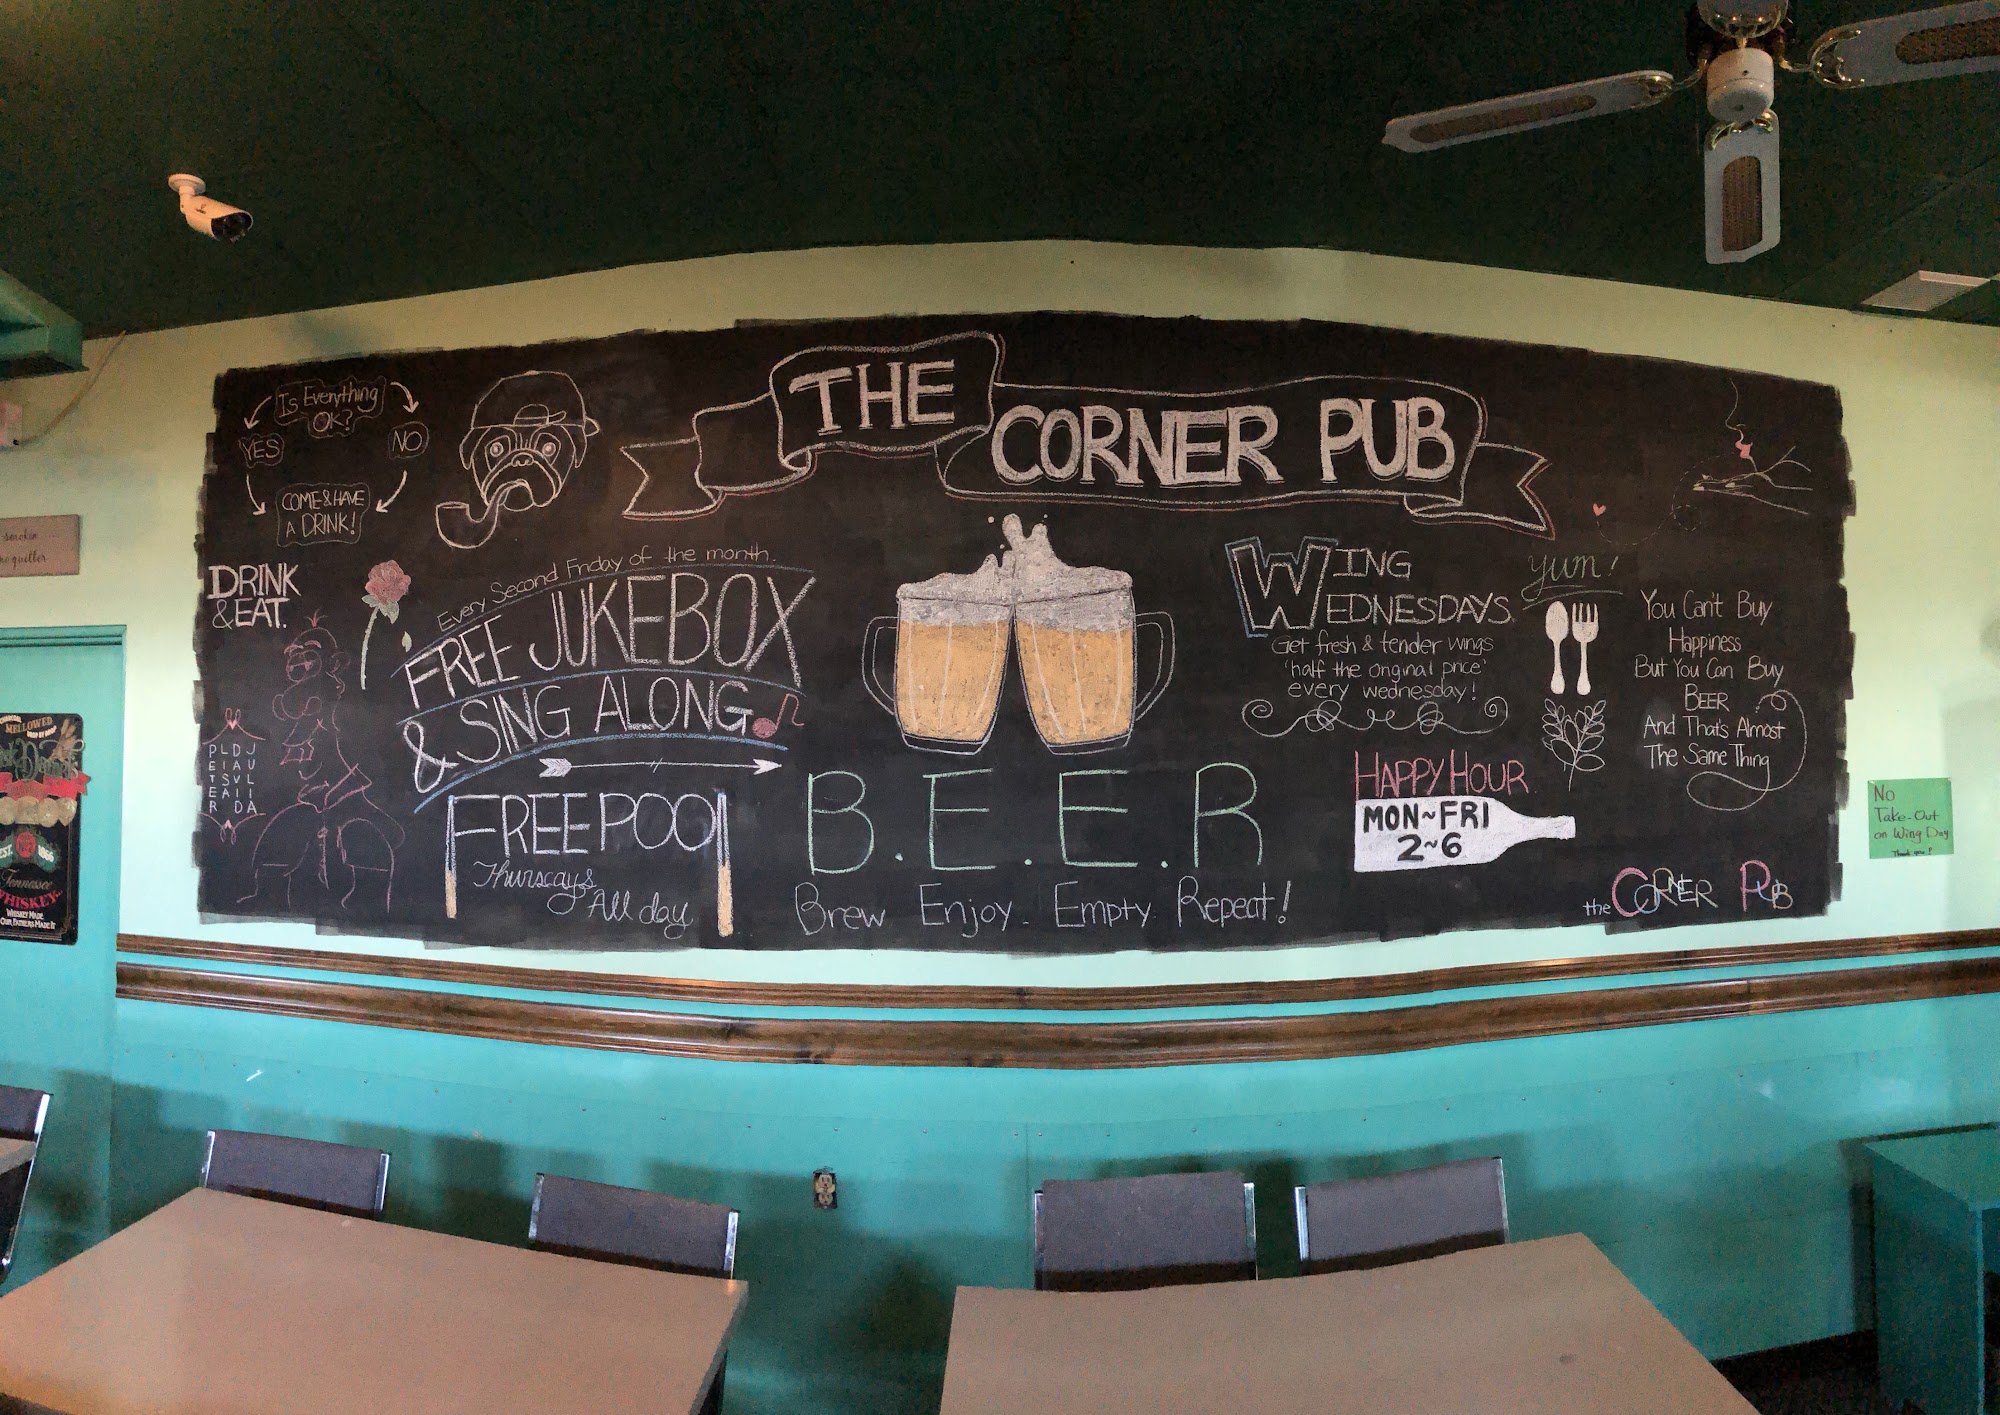 Is Everything
OK?
YES
NO
COME & HAVE
A DRINK!
THE
CORNER PUB
DRINK
& EAT.
Every Second Friday of the month.
FREE JUKEBOX
& SING ALONG
FREE POOl
Thursdays
All day
PETER
LISA
DAVID
JULIA
B.E.E.R
Brew Enjoy. Empty. Repeat!
WING
WEDNESDAYS.
Get fresh & tender wings
'half the original price'
every wednesday!
yum!
HAPPY HOUR
MON~FRI
2~6
You Can't Buy
Happiness
But You Can Buy
BEER
And That's Almost
The Same Thing
the CORNER PUB
No
Take-Out
on Wing Day
Thank you!
MELLOWED
DROP BY DROP
EST. 1866
Tennessee
WHISKEY
WHISKEY MADE
OUR FATHERS MADE IT